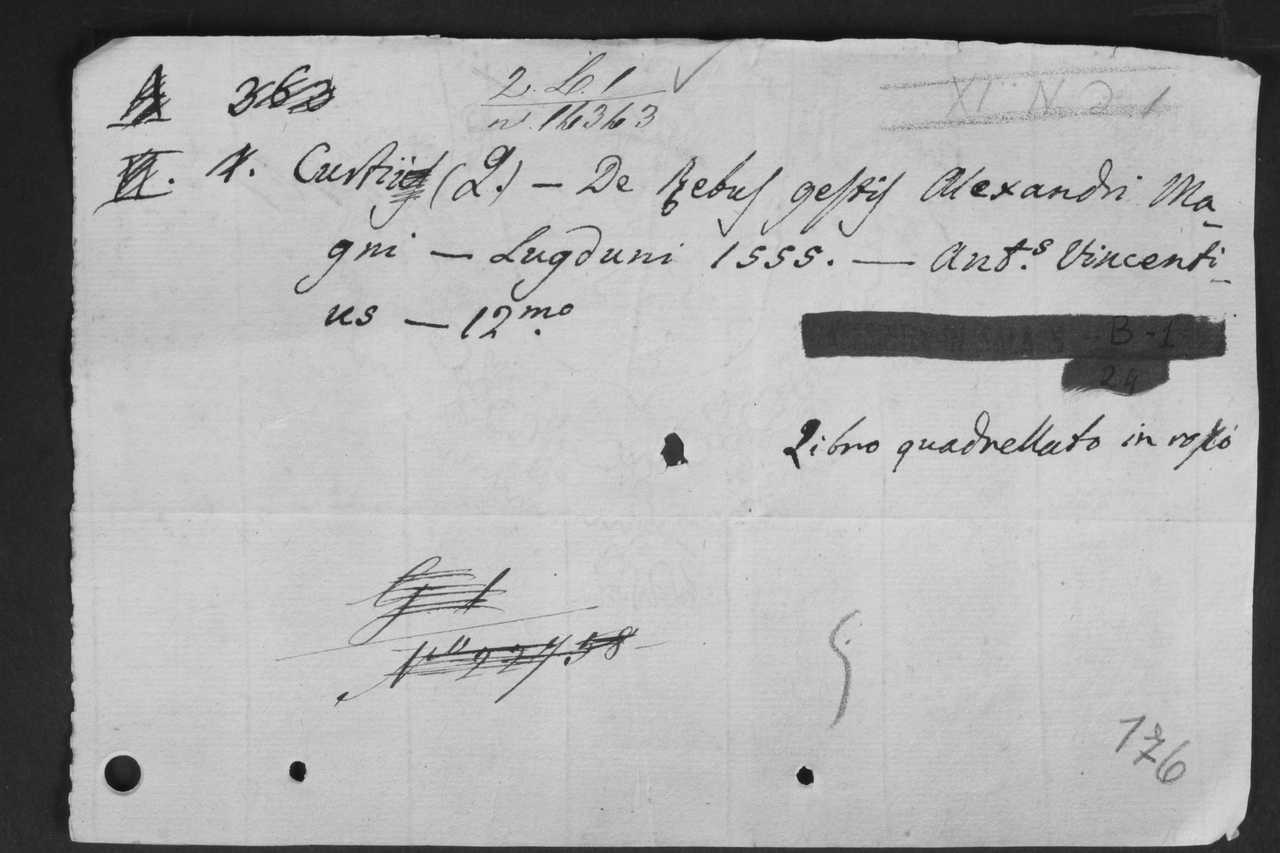 A 363 2. L. 1 XI N 2 1
n. 16363
II. 4. Curtij (Q.) — De Rebus gestis Alexandri Ma-
gni — Lugduni 1555. — Ant.s Vincenti-
us — 12mo
B-1
24
Libro quadrellato in rosso
G 1
No 22758
176